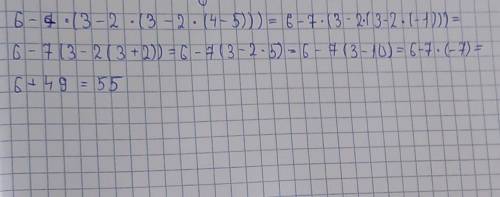 6 - 7 · (3 - 2 · (3 - 2 · (4 - 5))) = 6 - 7 · (3 - 2 · (3 - 2 · (-1))) =
6 - 7 (3 - 2 (3 + 2)) = 6 - 7 (3 - 2 · 5) = 6 - 7 (3 - 10) = 6 - 7 · (-7) =
6 + 49 = 55